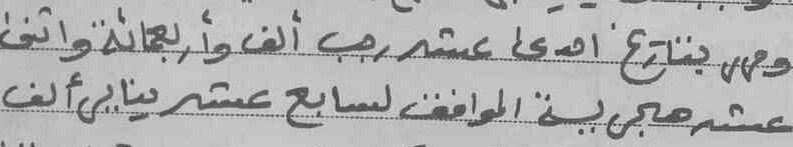 وحرر بتاريخ احدى عشر رجب ألف وأربعمائة واثنى
عشر هجرية الموافق لسابع عشر يناير ألف